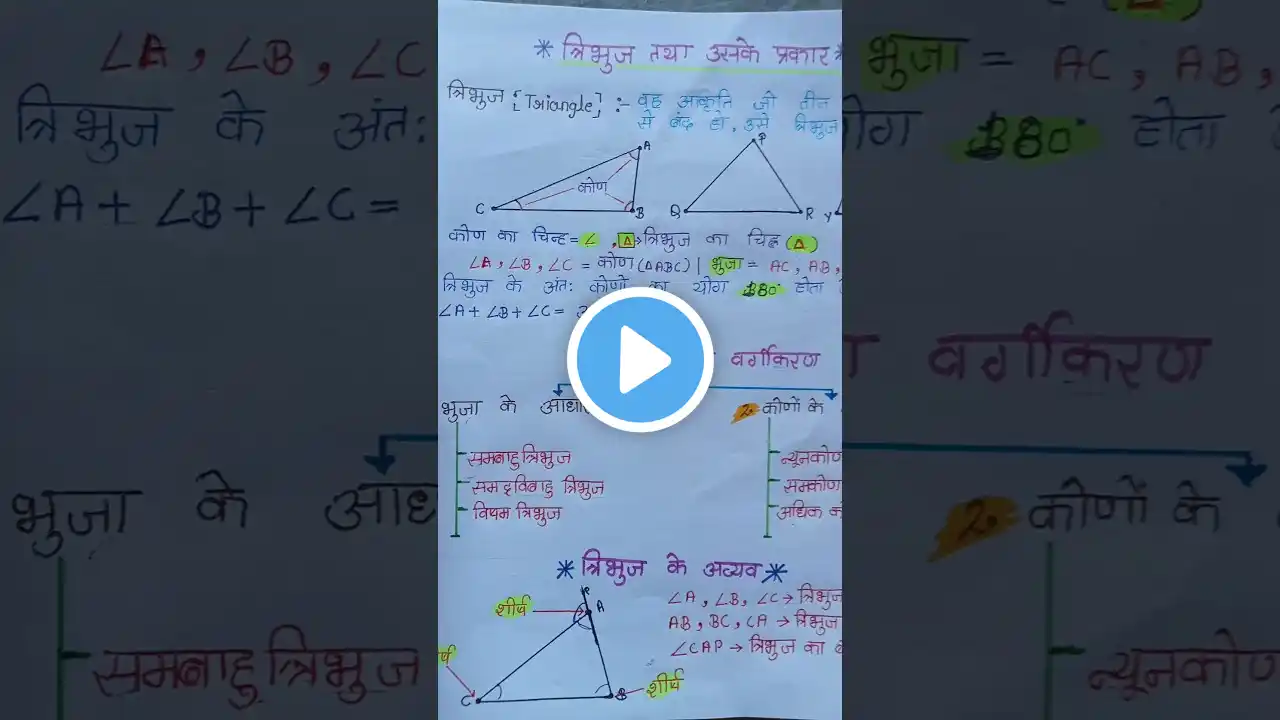 * त्रिभुज तथा उसके प्रकार *
त्रिभुज [Triangle] :- वह आकृति जो तीन
से बंद हो, उसे त्रिभुज
A
कोण
C
B
P
Q
R
Y
कोण का चिन्ह = ∠ , Δ→त्रिभुज का चिह्न (Δ)
∠A, ∠B, ∠C = कोण (ΔABC) | भुजा = AC, AB,
त्रिभुज के अंतः कोणों का योग 180° होता
∠A + ∠B + ∠C =
वर्गीकरण
भुजा के आधा
समबाहु त्रिभुज
सम द्विबाहु त्रिभुज
विषम त्रिभुज
2. कोणों के
न्यूनकोण
समकोण
अधिक को
* त्रिभुज के अव्यव *
शीर्ष
P
A
C
B
शीर्ष
∠A, ∠B, ∠C → त्रिभुज
AB, BC, CA → त्रिभुज
∠CAP → त्रिभुज का
∠A, ∠B, ∠C
त्रिभुज के अंतः
∠A + ∠B + ∠C =
भुजा के आध
समबाहु त्रिभुज
भुजा = AC, AB,
योग 180° होता
वर्गीकरण
2. कोणों के
न्यूनकोण